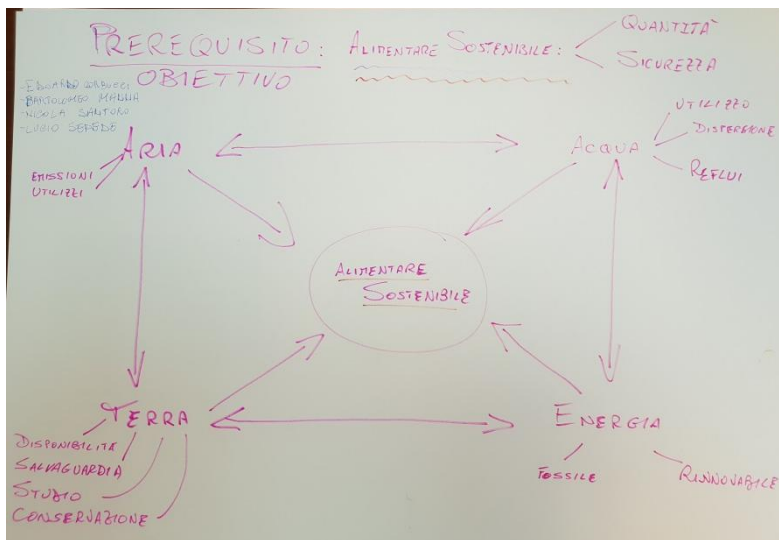 PREREQUISITO:
OBIETTIVO
ALIMENTARE SOSTENIBILE:
QUANTITÀ
SICUREZZA
-BARTOLOMEO
-NICOLA SANTORO
ARIA
EMISSIONI
UTILIZZI
ACQUA
UTILIZZO
DISPERSIONE
REFLUI
ALIMENTARE
SOSTENIBILE
TERRA
DISPONIBILITÀ
SALVAGUARDIA
STUDIO
CONSERVAZIONE
ENERGIA
FOSSILE
RINNOVABILE